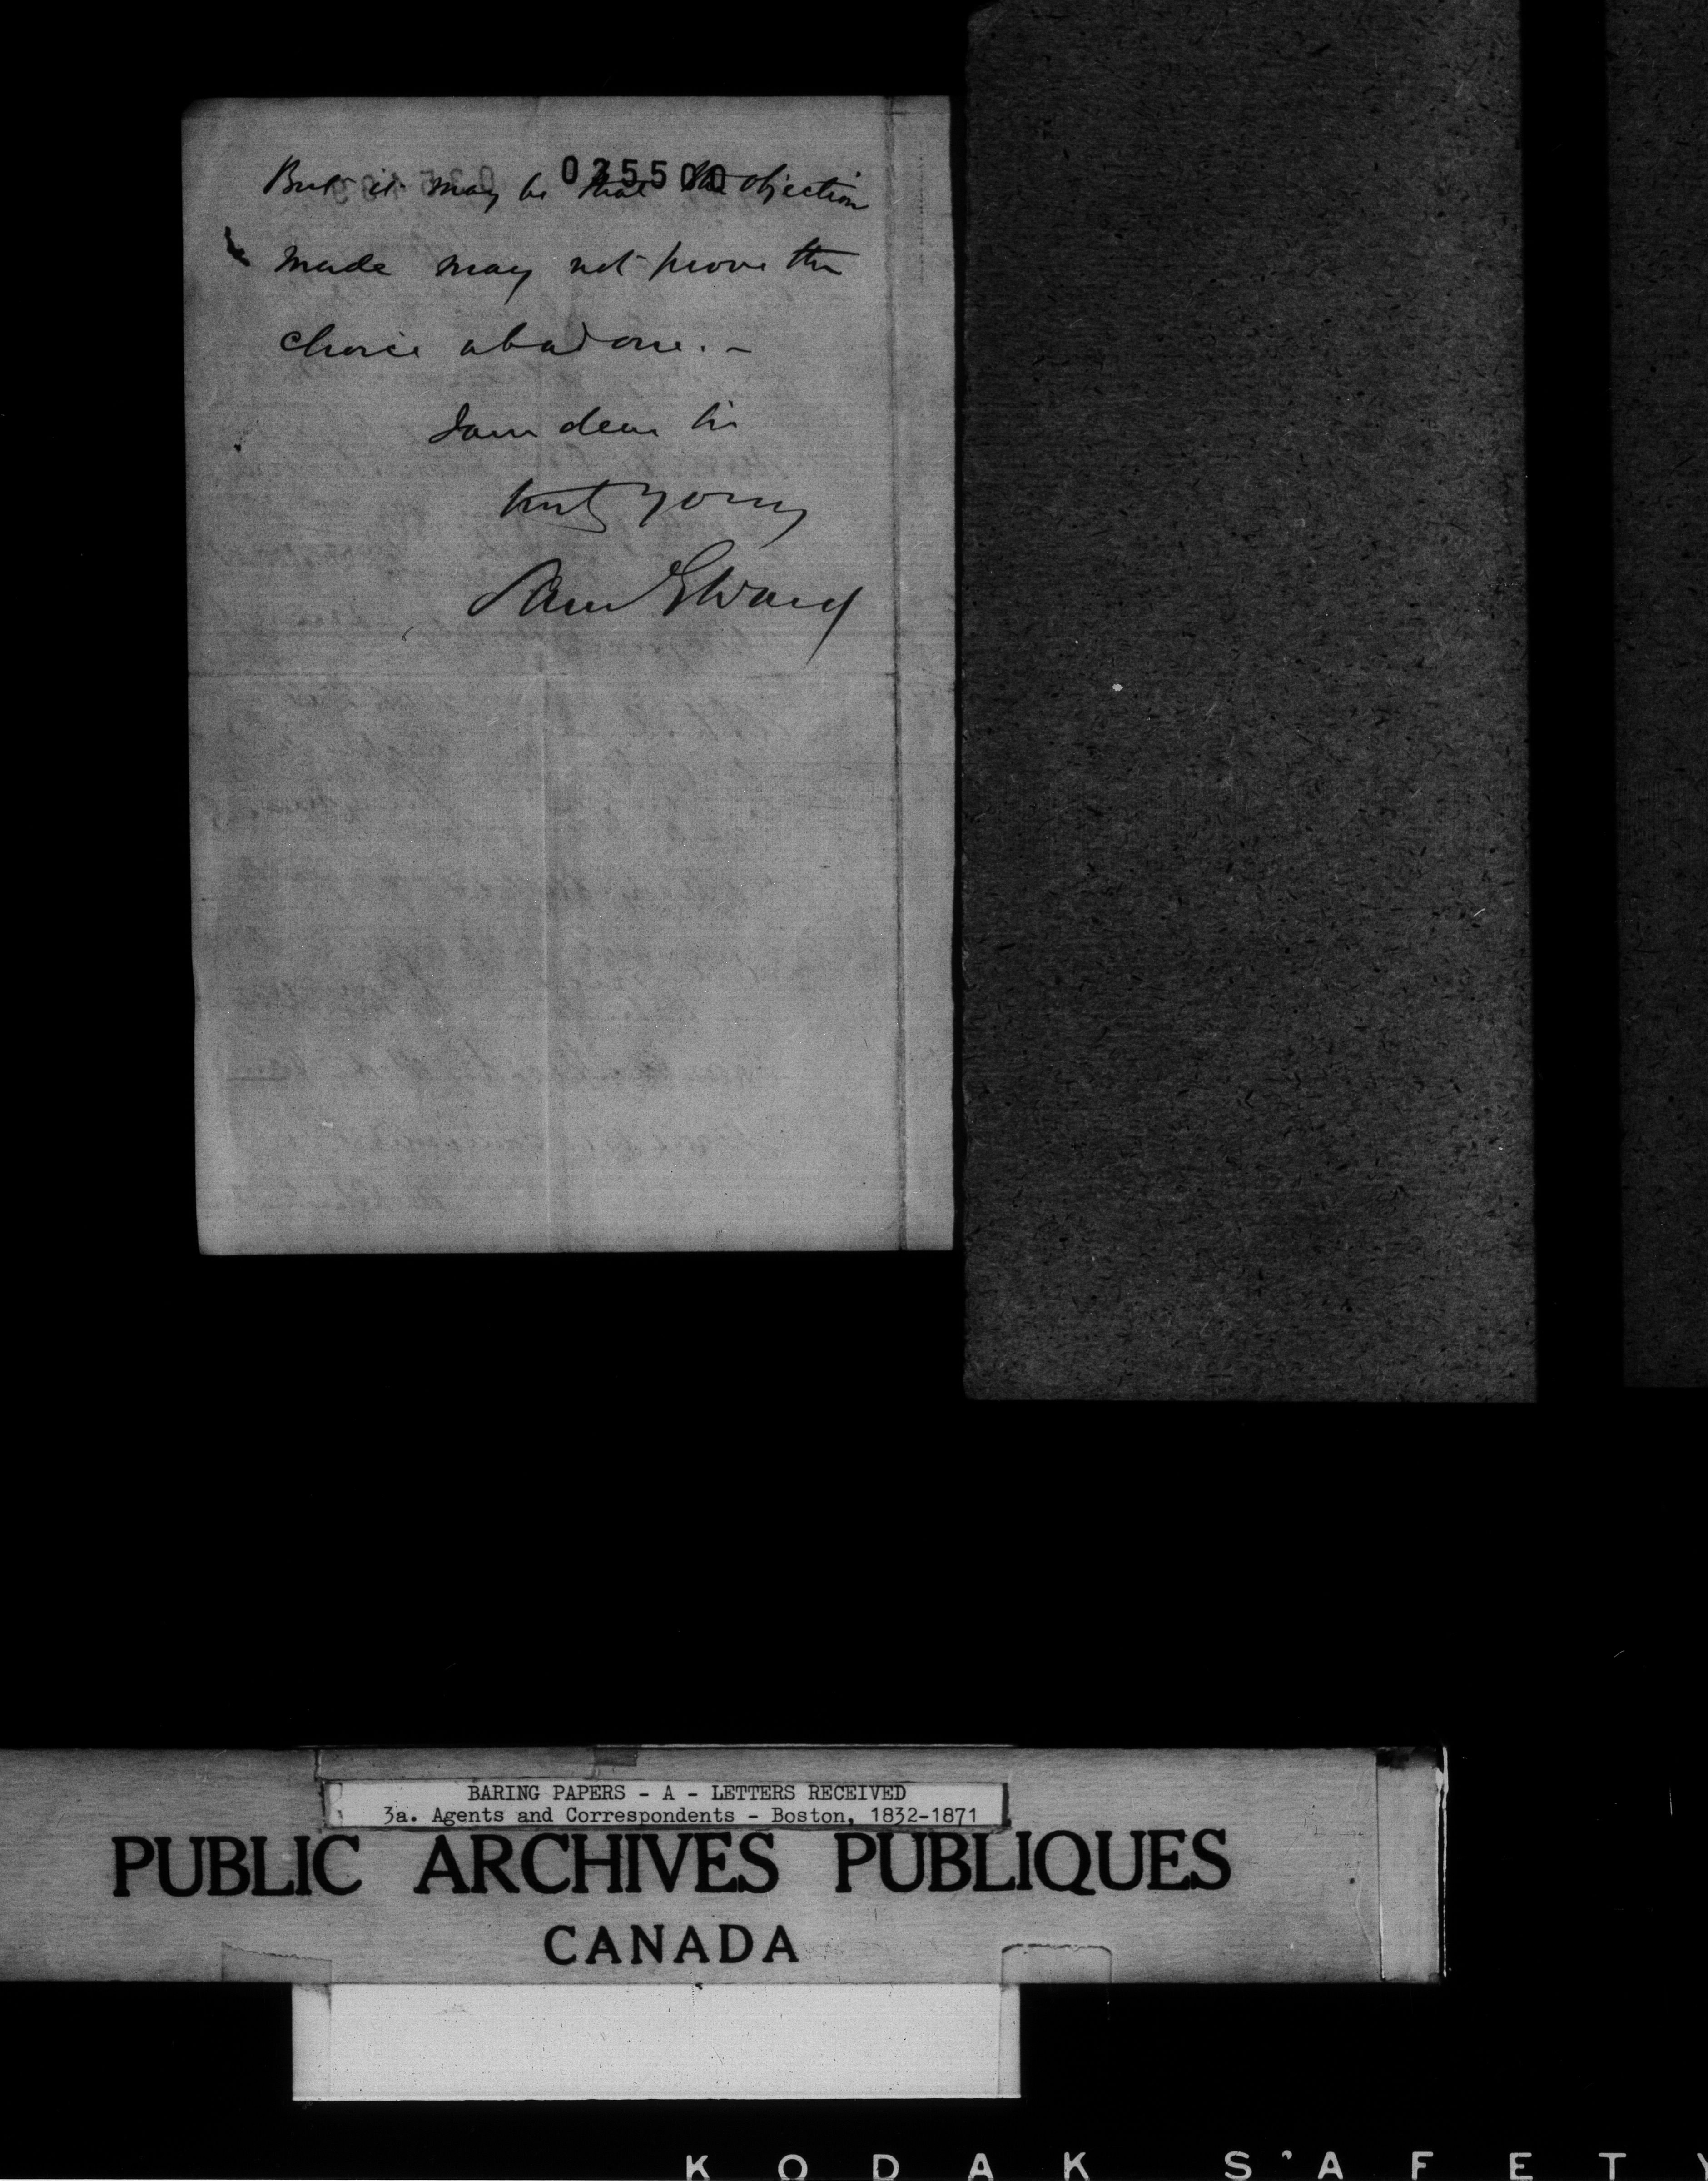 035500
But it may be that the objection
made may not prove the
choice a bad one. -
I am dear Sir
truly yours
Sam G Ward
BARING PAPERS - A - LETTERS RECEIVED
3a. Agents and Correspondents - Boston, 1832-1871
PUBLIC ARCHIVES PUBLIQUES
CANADA
KODAK S'AFETY